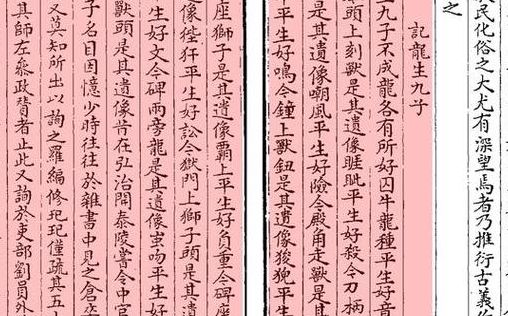 民化俗之大尤有深望焉者乃推衍古義
之
記龍生九子
九子不成龍各有所好囚牛龍種平生好音
頭上刻獸是其遺像睚眦平生好殺今刀柄
是其遺像嘲風平生好險今殿角走獸是其
平生好鳴今鐘上獸鈕是其遺像狻猊平生
座獅子是其遺像霸上平生好負重今碑座
像狴犴平生好訟今獄門上獅子頭是其遺
生好文今碑兩旁龍是其遺像蚩吻平生好
獸頭是其遺像昔在弘治間泰陵嘗令中官
子名目因憶少時往往於雜書中見之倉卒
又莫知所出以詢之羅編修玘玘僅疏其五
其師左叅政贊者止此又詢於吏部劉員外